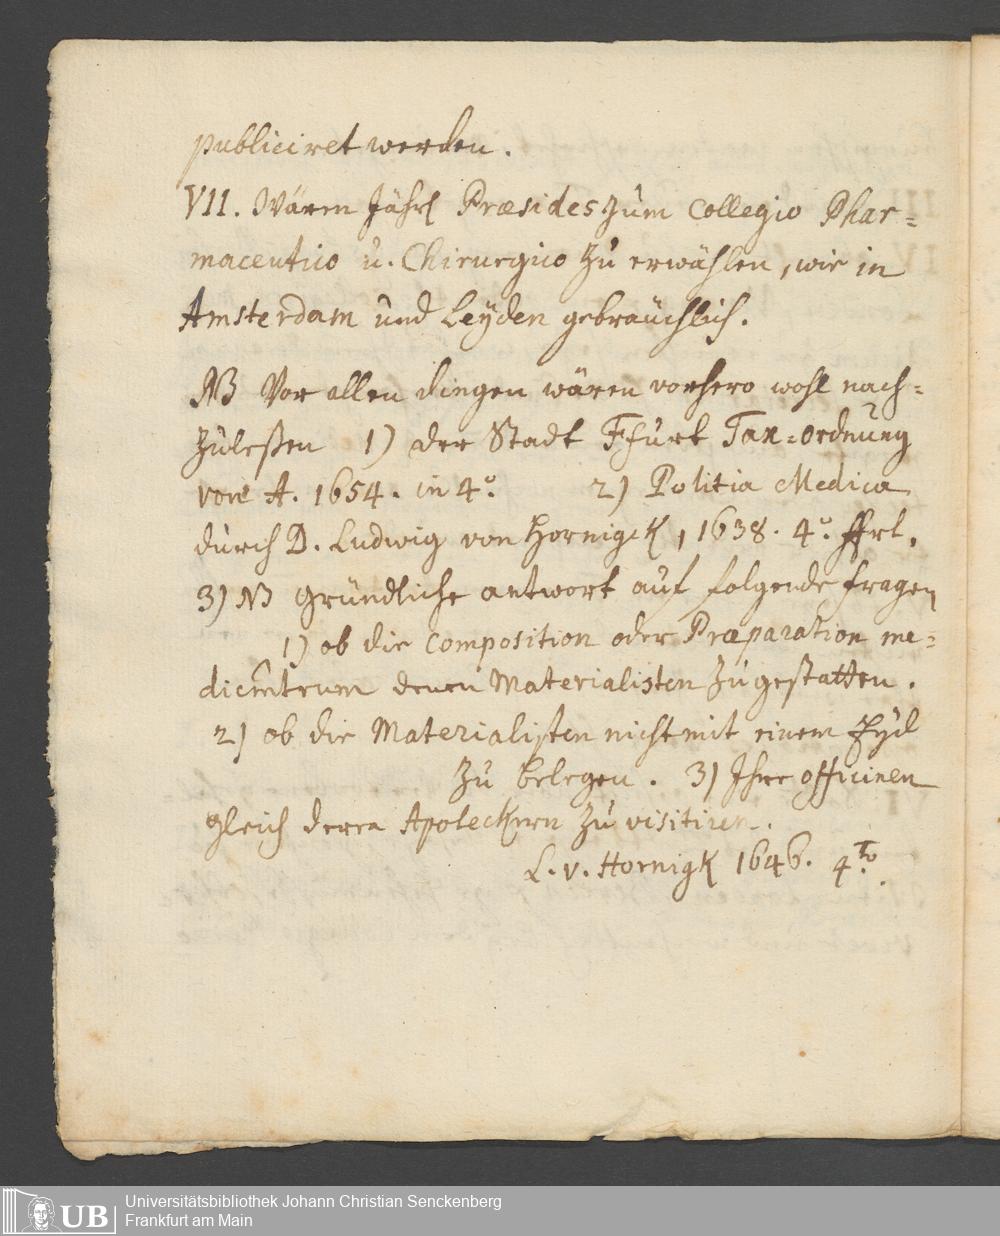 publiciret werden.
VII. Wären Jährl Præsides zum Collegio Phar=
maceutico u. Chirurgico zu erwählen, wie in
Amsterdam und Leÿden gebräuchlich.
NB Vor allen dingen wären vorhero wohl nach=
zuleßen 1) der Stadt Ffurt Tax=ordnung
von A. 1654. in 4º. 2) Politia Medica
durch D. Ludwig von Hornigck, 1638. 4º. ffrt.
3) NB Gründliche antwort auf folgende fragen
1) ob die Composition oder Præparation me=
dicmtrum denen Materialisten zu gestatten.
2) ob die Materialisten nicht mit einem Eÿd
zu belegen. 3) Ihre officinen
gleich derer Apoteckern zu visitiren.
L. v. Hornigk 1646. 4to.
UB
Universitätsbibliothek Johann Christian Senckenberg
Frankfurt am Main